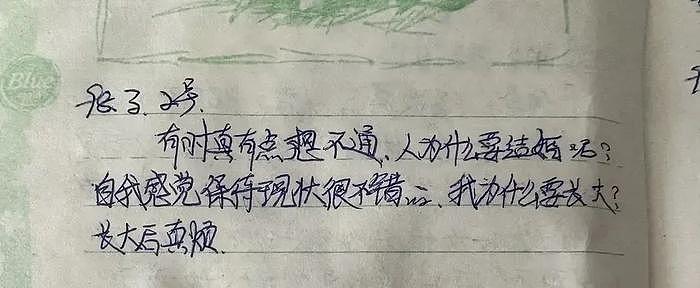 Blue
2号.
有时真有点想不通、人为什么要结婚呢?
自我感觉保持现状很不错……、我为什么要长大?
长大后真烦.